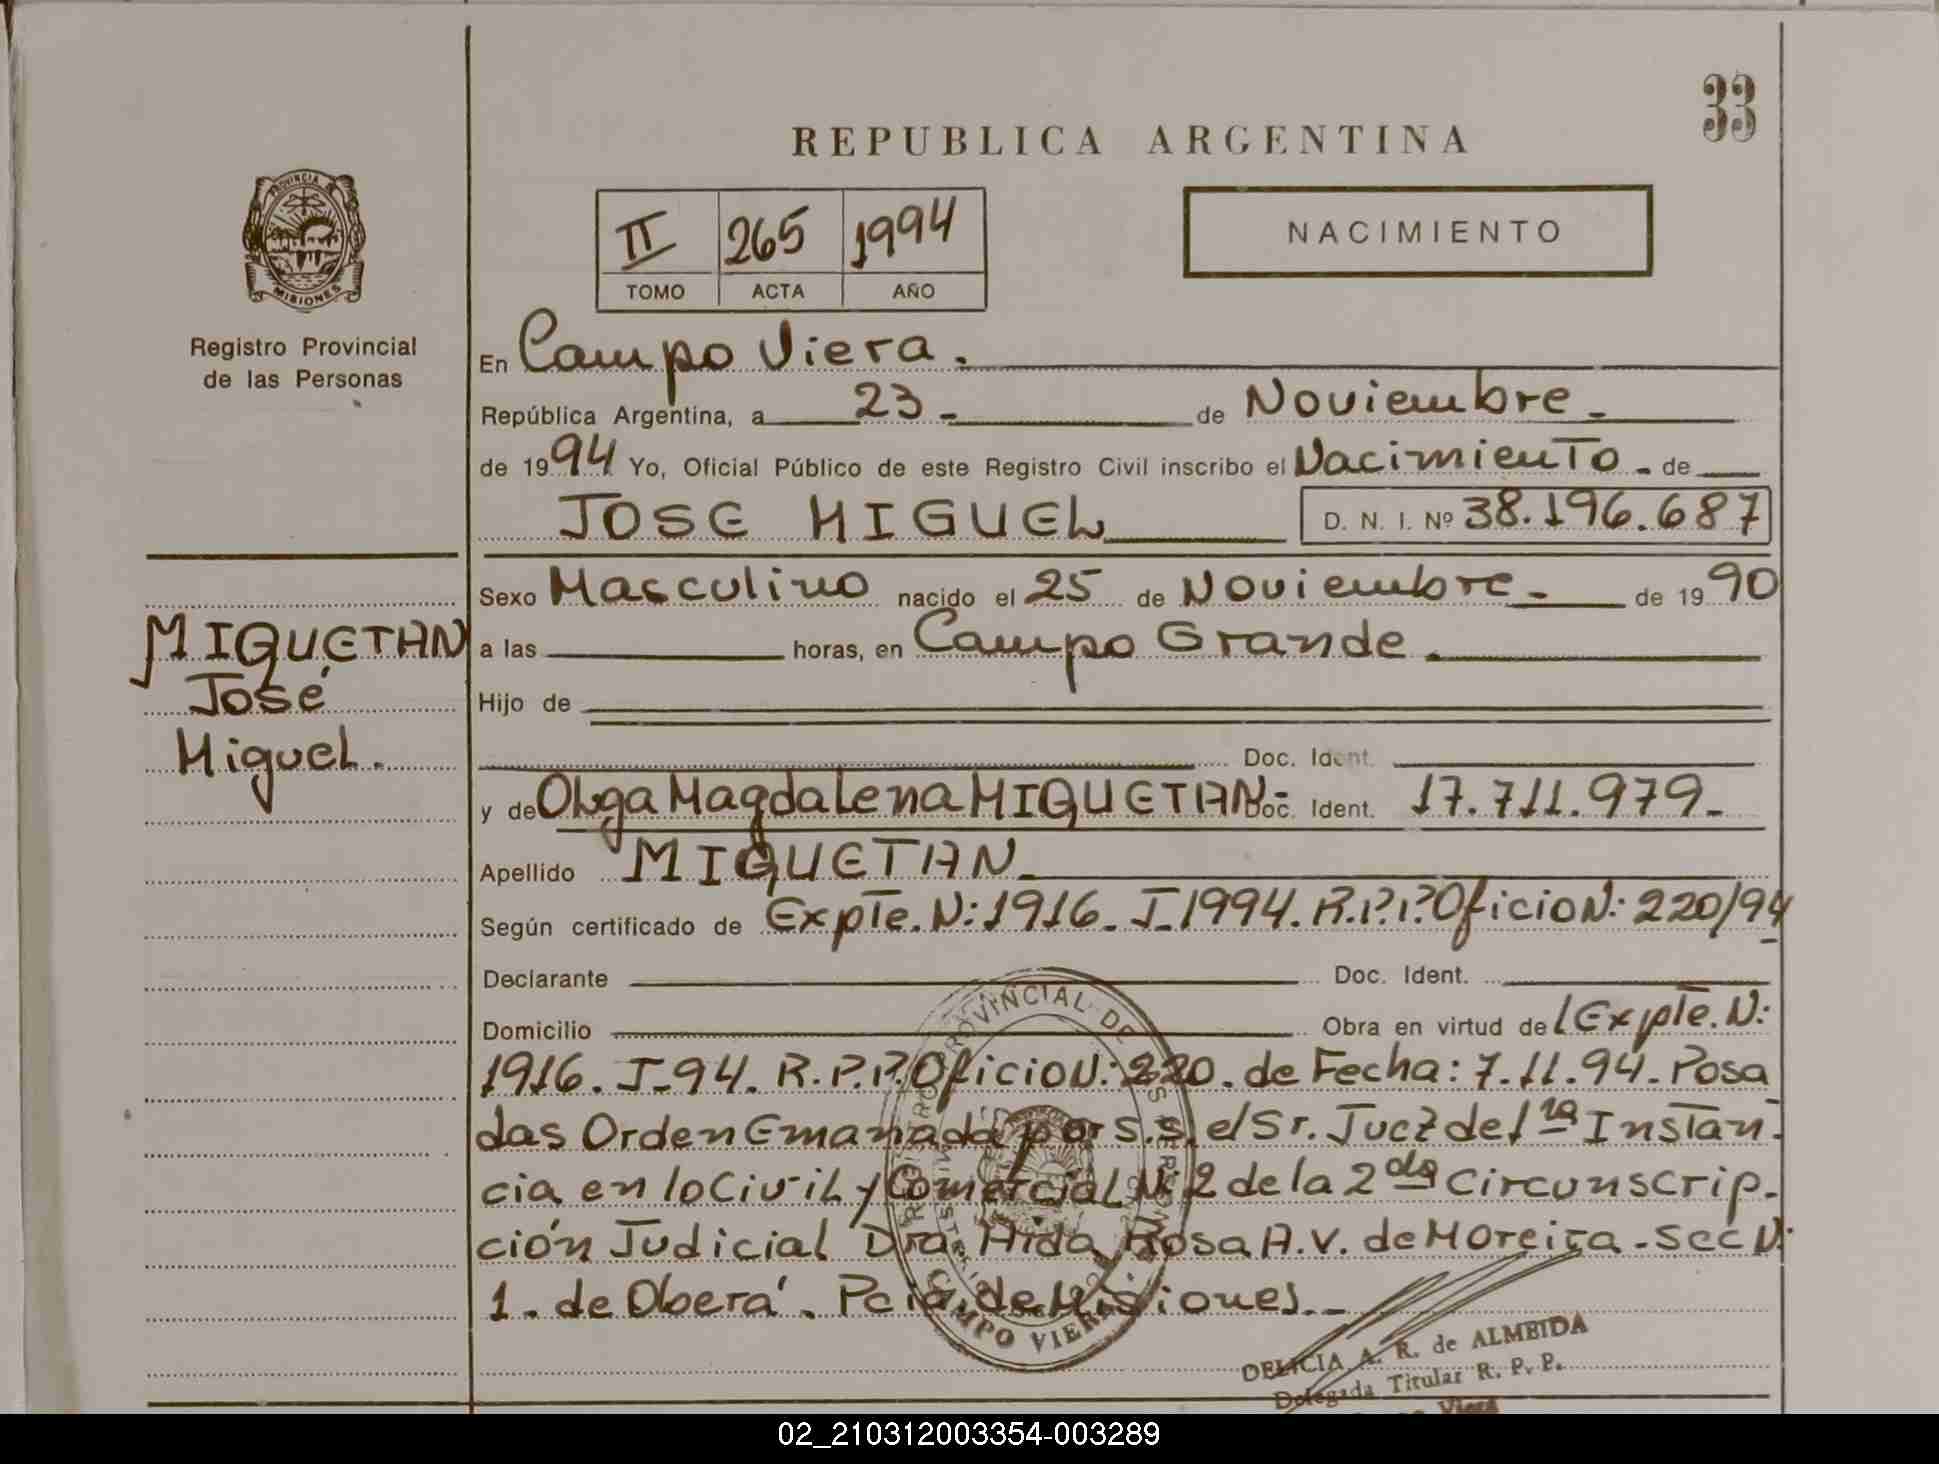 33
REPUBLICA ARGENTINA
PROVINCIA DE
MISIONES
II 265 1994
TOMO ACTA AÑO
NACIMIENTO
Registro Provincial
de las Personas
En Campo Viera.
República Argentina, a 23 - de Noviembre -
de 1994 Yo, Oficial Público de este Registro Civil inscribo el Nacimiento - de
JOSE MIGUEL D. N. I. Nº 38.196.687
Sexo Masculino nacido el 25 de Noviembre - de 1990
MIQUETAN
José
Miguel.
a las horas, en Campo Grande.
Hijo de
Doc. Ident.
y de Olga Magdalena MIQUETAN - Doc. Ident. 17.711.979-
Apellido MIQUETAN -
Según certificado de Expte. N: 1916 - I - 1994. R.P.P. Oficio N: 220/94
Declarante Doc. Ident.
Domicilio Obra en virtud del Expte. N:
1916. I-94. R.P.P. Oficio N: 220. de Fecha: 7.11.94. Posa
das Orden Emanada por S.S. el Sr. Juez de 1ra Instan-
cia en lo Civil y Comercial N: 2 de la 2da Circunscrip-
ción Judicial Dra. Aida Rosa A.V. de Moreira - Sec N:
1. de Oberá. Pcia. de Misiones. -
CAMPO VIERA
DELICIA A. R. de ALMEIDA
Delegada Titular R. P. P.
Viera
02_210312003354-003289